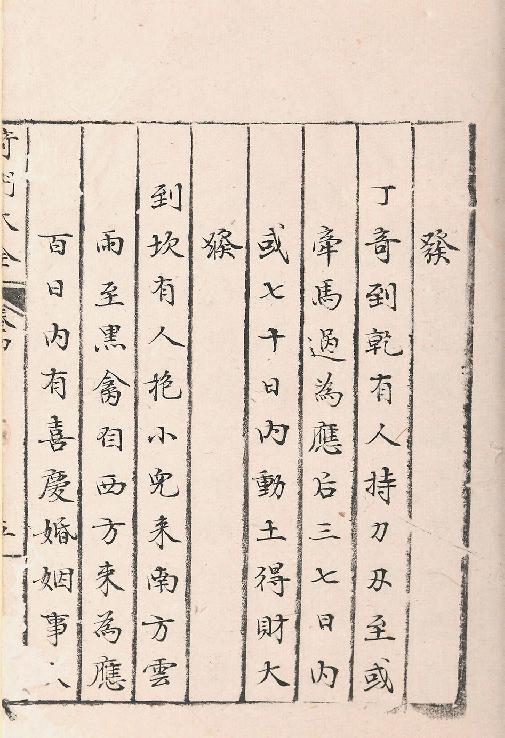 發
丁奇到乾有人持刀刃至或
牽馬過為應后三七日內
或七十日內動土得財大
發
到坎有人抱小兒來南方雲
雨至黑禽自西方來為應
百日內有喜慶婚姻事大
奇門大全